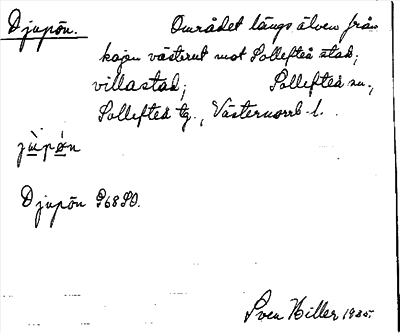 Djupön. Området längs älven från
kajen västerut mot Sollefteå stad;
villastad; Sollefteå sn.,
Sollefteå tg., Västernorrl. l.
jùpön
Djupön G68SO.
Sven Hiller 1935.